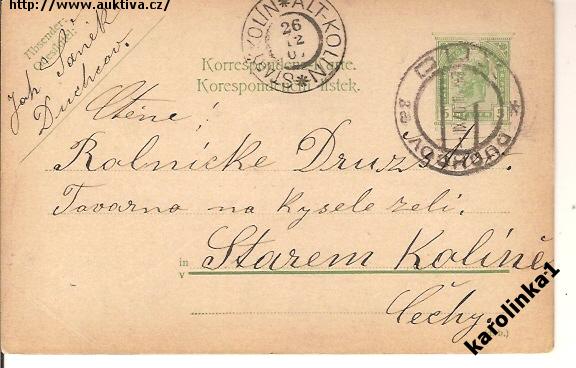 http://www.auktiva.cz/
Absender:
Odesílatel:
Joh. Taněk
Duchcov.
STARÝ KOLÍN * ALT-KOLIN *
26
12
07
Korrespondenz-Karte.
Korespondenční lístek.
DUCHCOV
Ctěné!
Rolnické Družst.
Tovarna na kysele zelí.
in
v
Starem Kolíně
Čechy.
karolinka1